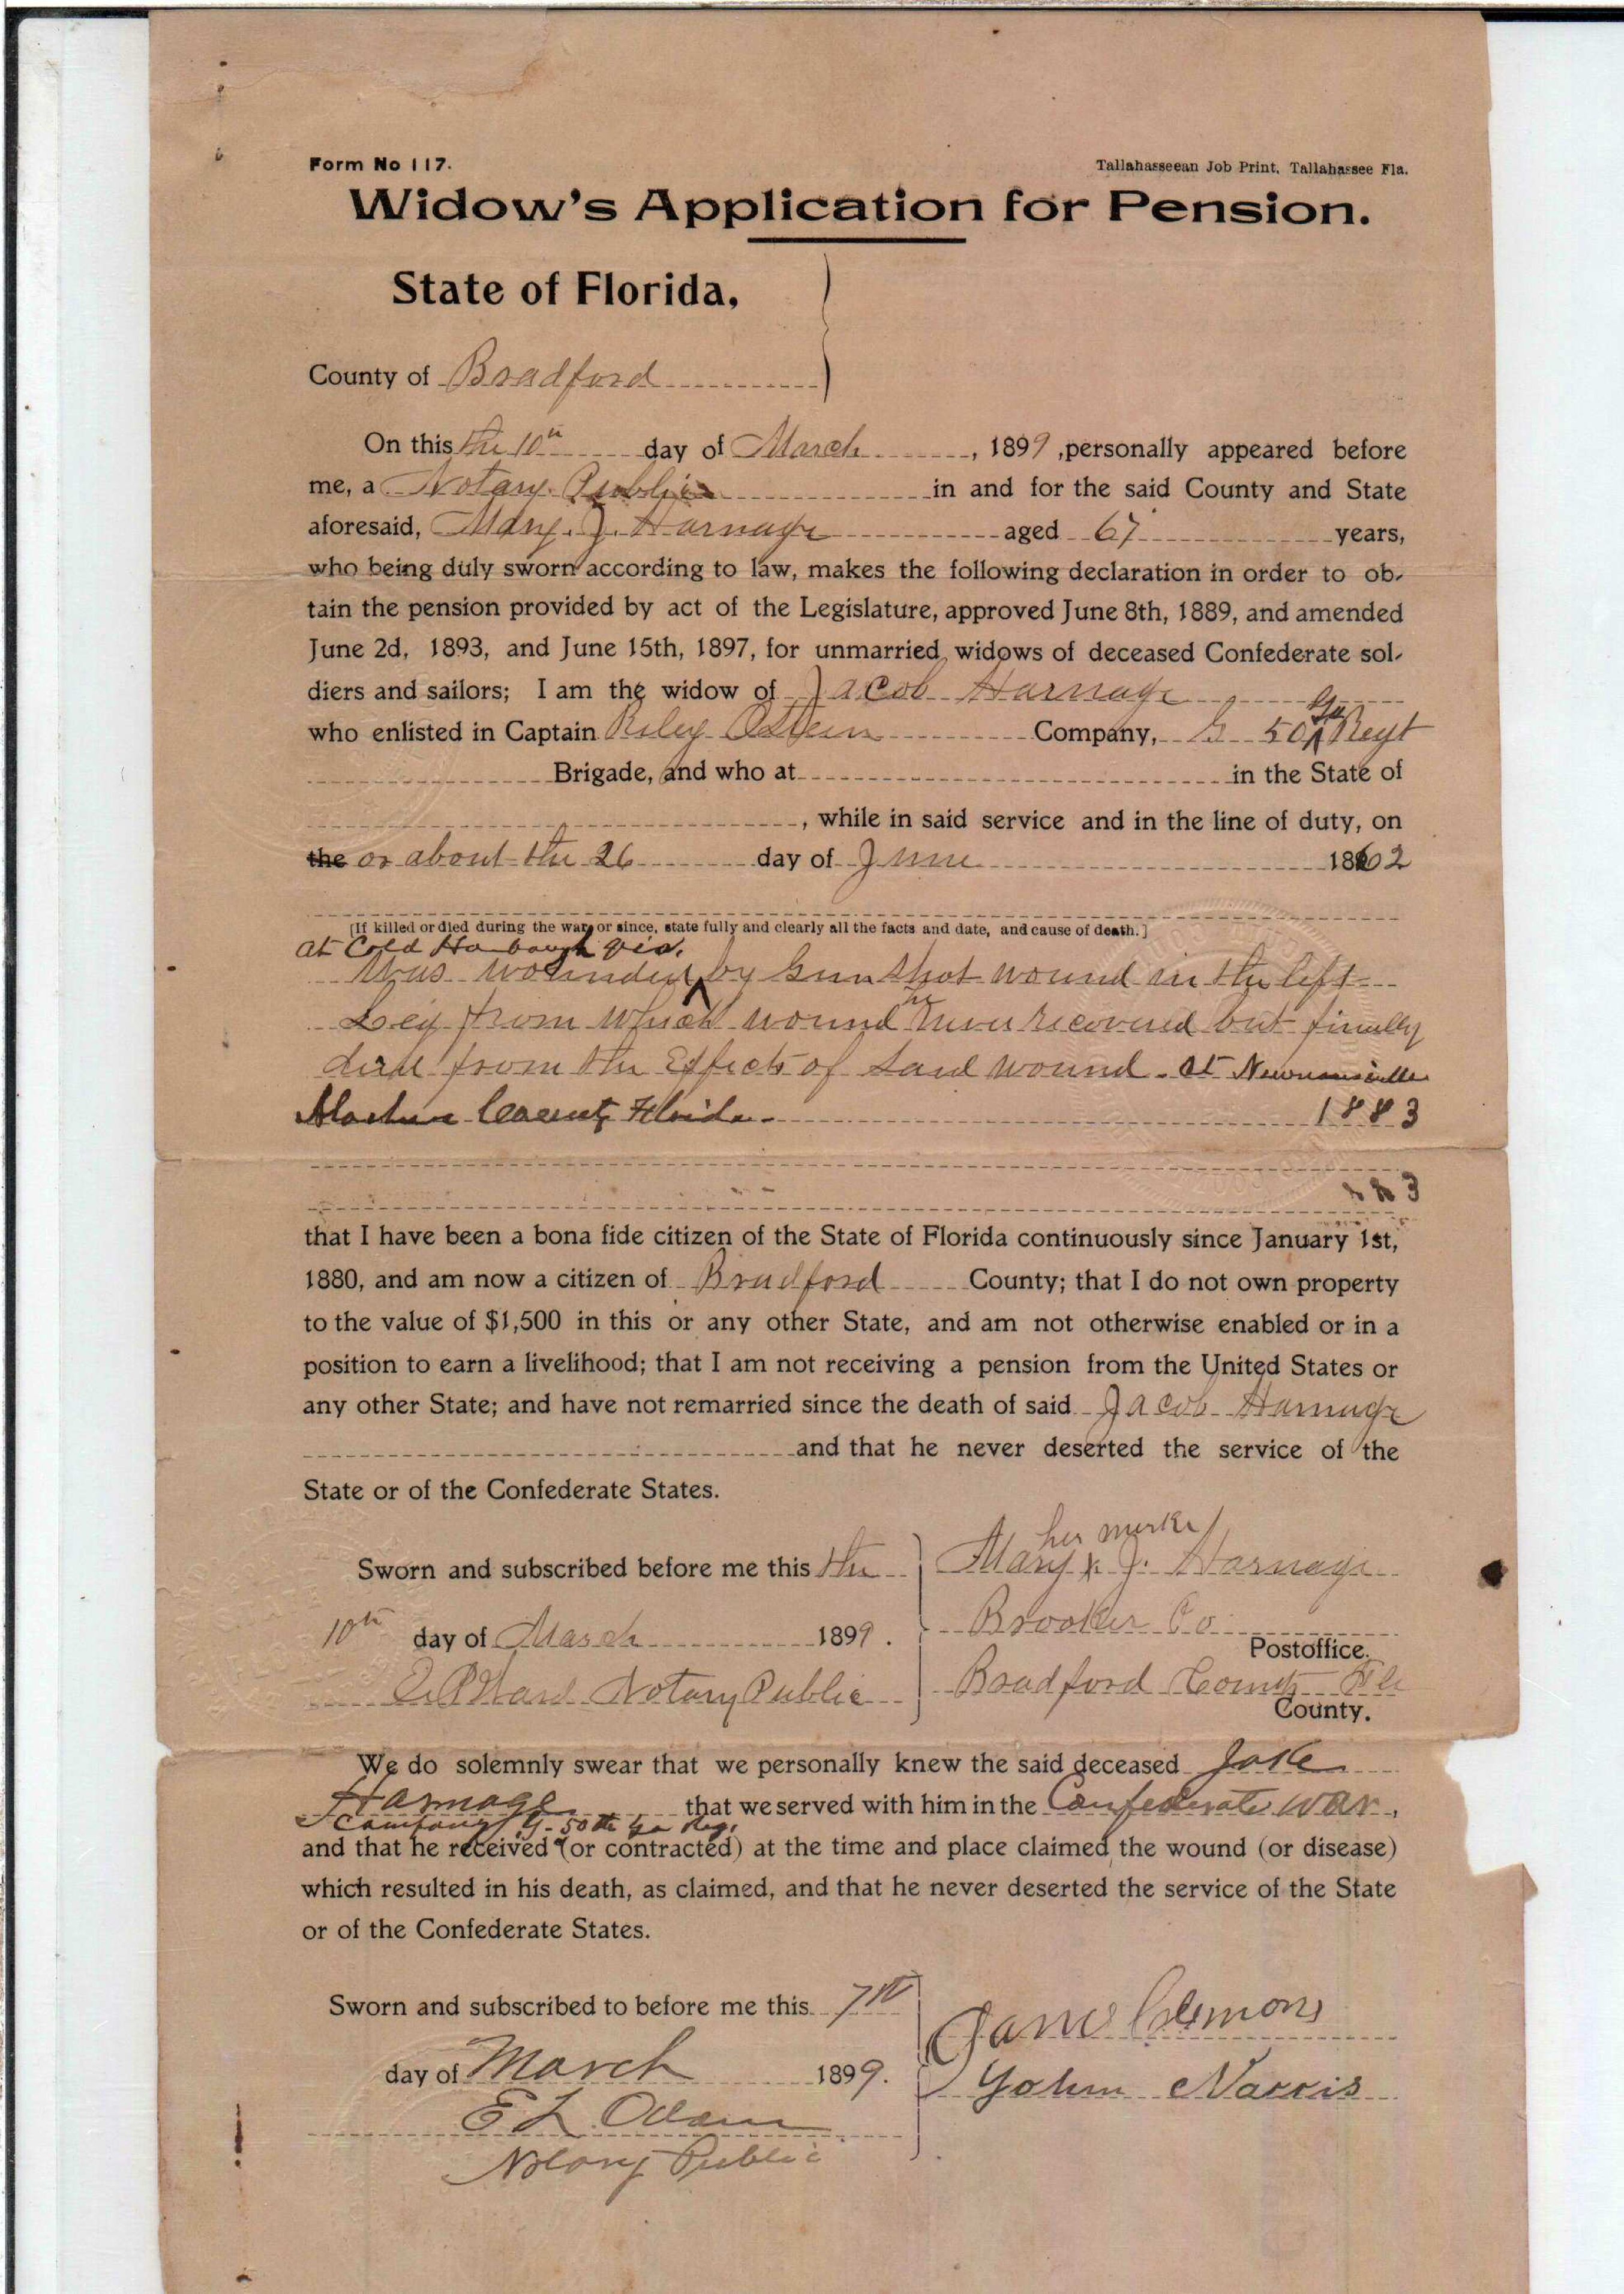 Form No 117.
Tallahasseean Job Print, Tallahassee Fla.
Widow's Application for Pension.
State of Florida,
County of Bradford
On this the 10th day of March, 1899, personally appeared before
me, a Notary Public in and for the said County and State
aforesaid, Mary. J. Harnage aged 67 years,
who being duly sworn according to law, makes the following declaration in order to ob-
tain the pension provided by act of the Legislature, approved June 8th, 1889, and amended
June 2d, 1893, and June 15th, 1897, for unmarried widows of deceased Confederate sol-
diers and sailors; I am the widow of Jacob Harnage
who enlisted in Captain Riley Company, G 50 Ga Regt
Brigade, and who at in the State of
, while in said service and in the line of duty, on
the or about the 26 day of June 1862
[If killed or died during the war, or since, state fully and clearly all the facts and date, and cause of death.]
at Cold
was wounded by Gun shot wound in the left
Leg from which wound he never recovered but finally
died from the Effects of said wound. at Newnansville
Alachua County Florida. 1883
883
that I have been a bona fide citizen of the State of Florida continuously since January 1st,
1880, and am now a citizen of Bradford County; that I do not own property
to the value of $1,500 in this or any other State, and am not otherwise enabled or in a
position to earn a livelihood; that I am not receiving a pension from the United States or
any other State; and have not remarried since the death of said Jacob Harnage
and that he never deserted the service of the
State or of the Confederate States.
her mark
Sworn and subscribed before me this the Mary x J. Harnage
10th day of March 1899. Brooker Co Postoffice.
Notary Public Bradford County Fla County.
We do solemnly swear that we personally knew the said deceased Jake
Harnage that we served with him in the Confederate war,
Company G. 50th Ga Reg.
and that he received (or contracted) at the time and place claimed the wound (or disease)
which resulted in his death, as claimed, and that he never deserted the service of the State
or of the Confederate States.
Sworn and subscribed to before me this 7th
Clemons
day of March 1899. John Narris
E L Odam
Notary Public